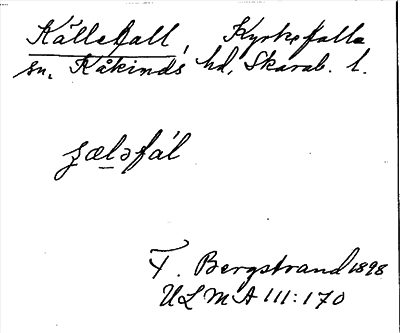 Källefall, Kyrkefalla
sn, Kåkinds hd, Skarab. l.
ʒæləfál
T. Bergstrand 1898
ULMA 111:170